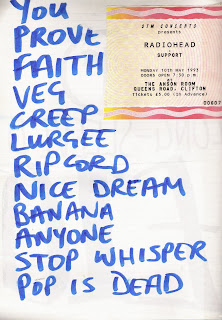 YOU
PROVE
FAITH
VEG
CREEP
LURGEE
RIPCORD
NICE DREAM
BANANA
ANYONE
STOP WHISPER
POP IS DEAD
STM CONCERTS
presents
RADIOHEAD
+
SUPPORT
MONDAY 10th MAY 1993
DOORS OPEN 7:30 p.m.
at
THE ANSON ROOM
QUEENS ROAD, CLIFTON
Tickets £5.00 (in Advance)